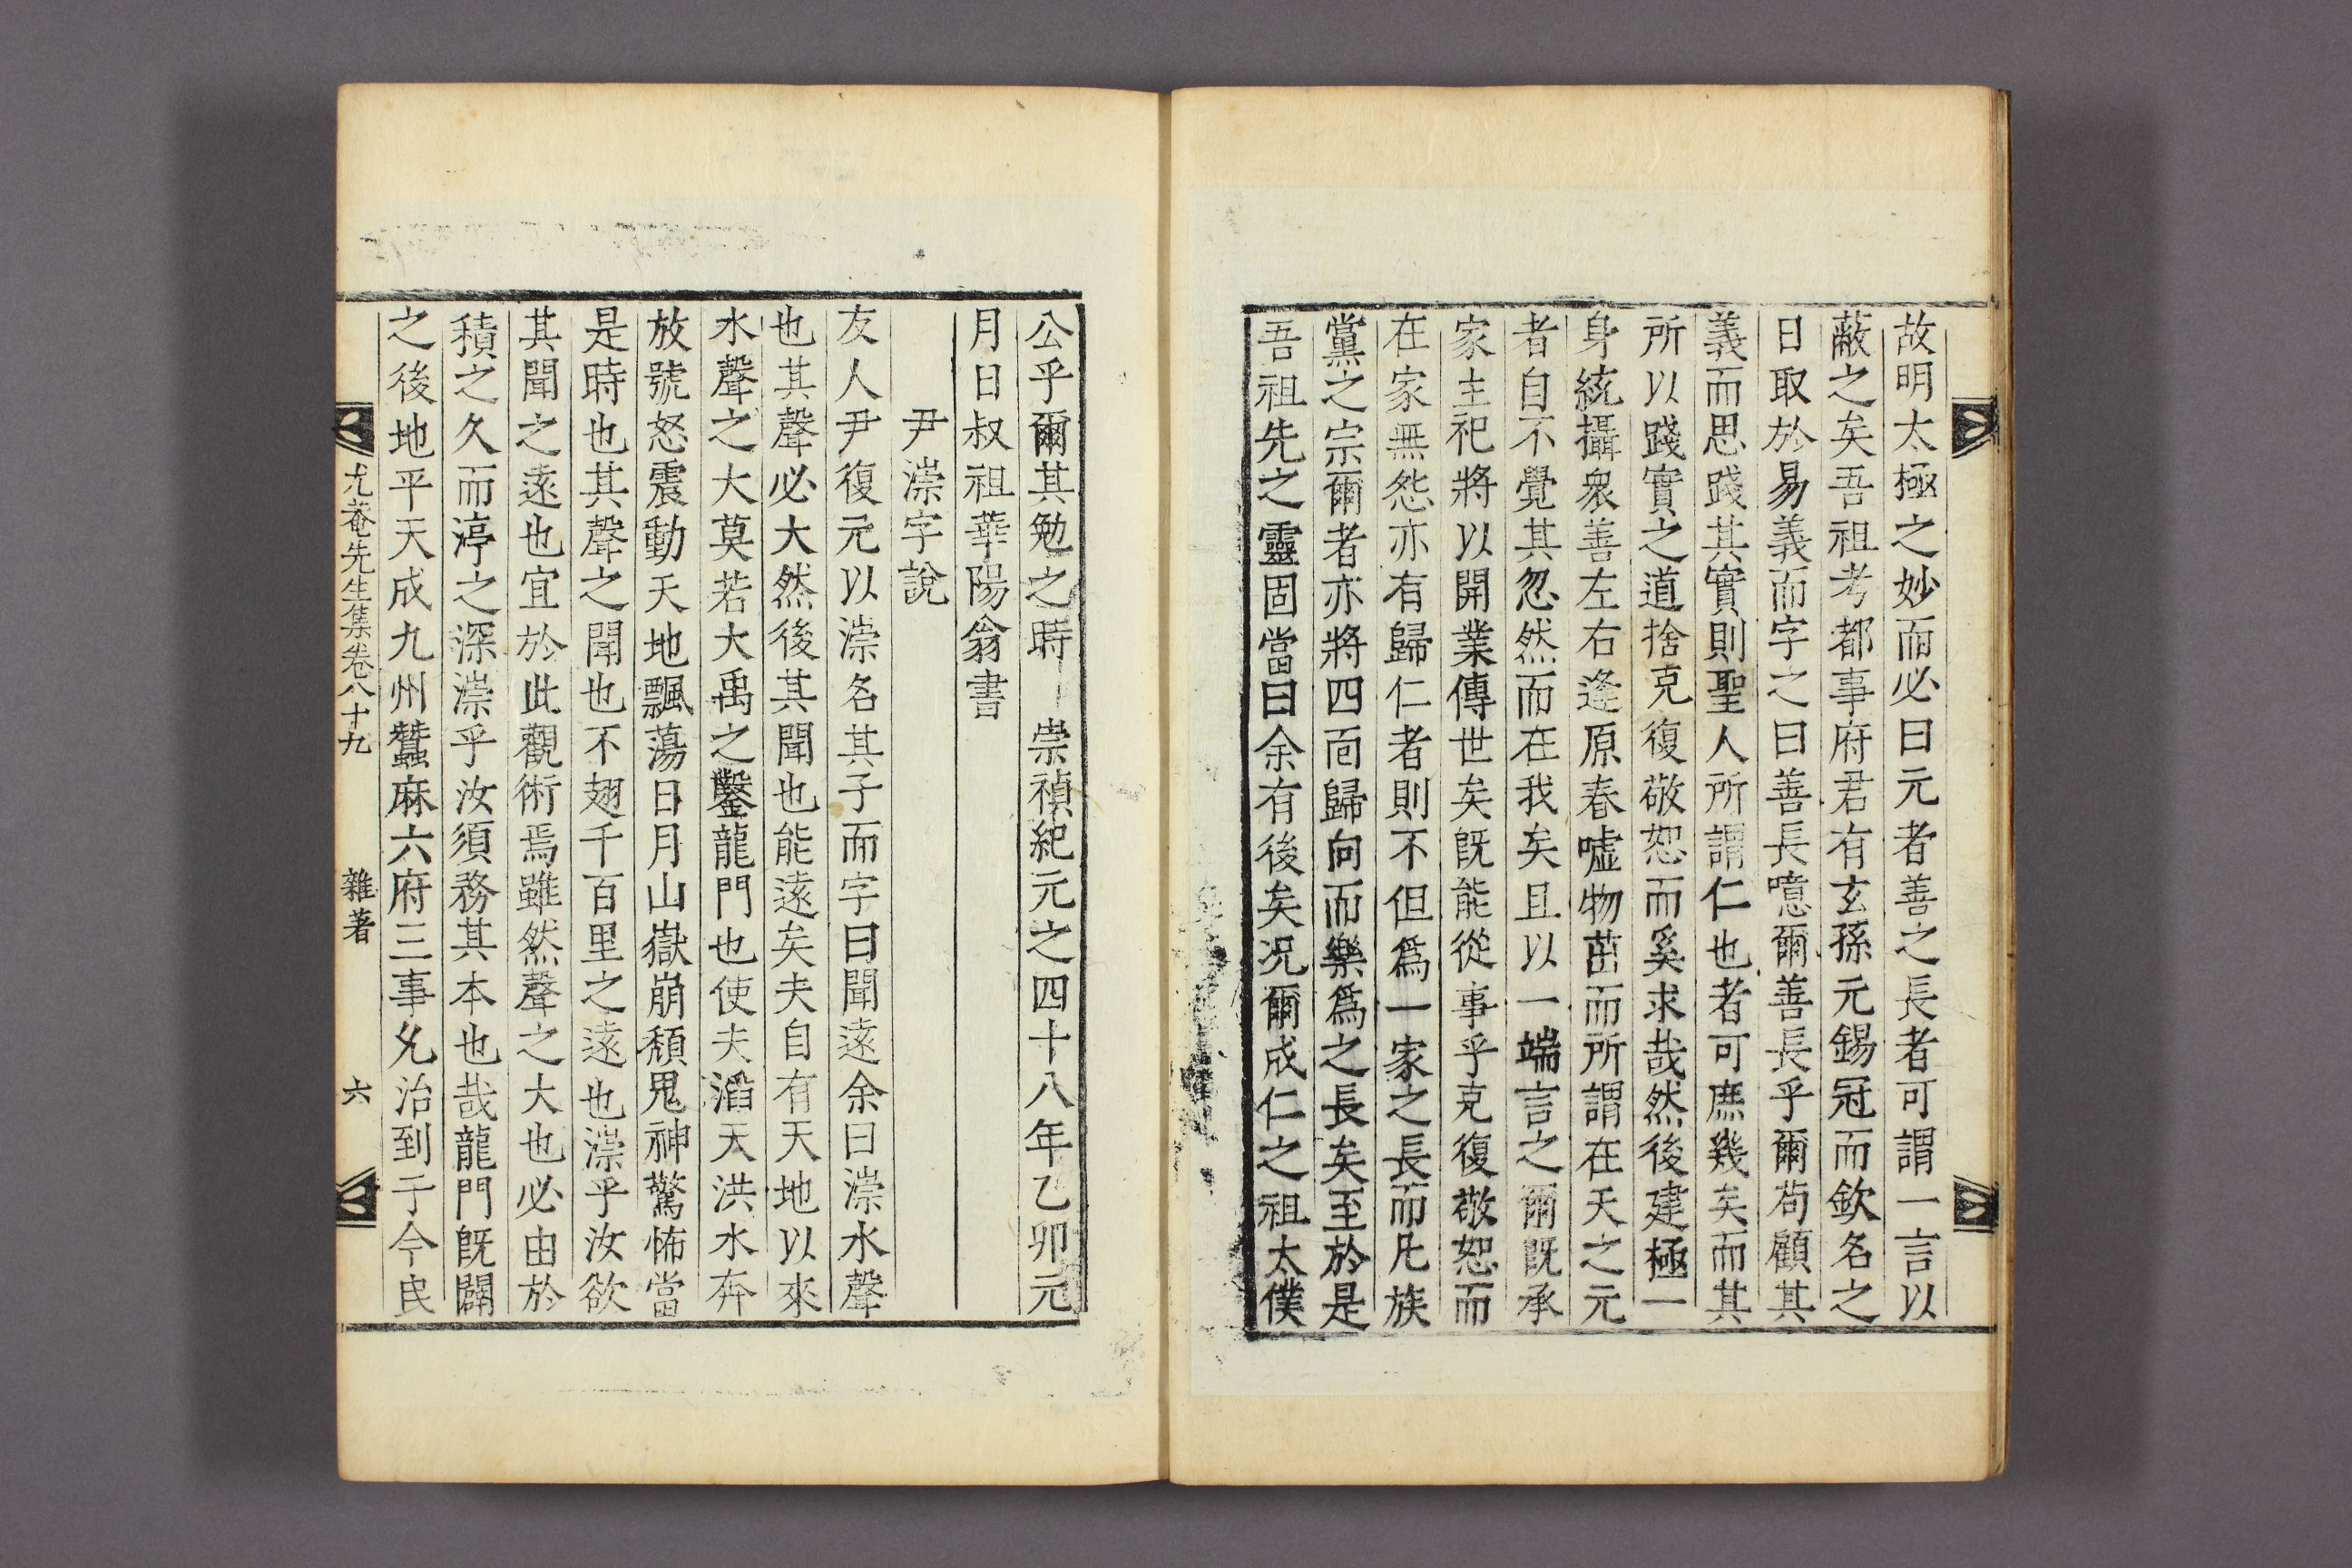 故明太極之妙而必曰元者善之長者可謂一言以
蔽之矣吾祖考都事府君有玄孫元錫冠而欽名之
日取於易義而字之曰善長噫爾善長乎爾苟顧其
義而思踐其實則聖人所謂仁也者可庶幾矣而其
所以踐實之道捨克復敬恕而奚求哉然後建極一
身統攝衆善左右逢原春噓物茁而所謂在天之元
者自不覺其忽然而在我矣且以一端言之爾旣承
家主祀將以開業傳世矣旣能從事乎克復敬恕而
在家無怨亦有歸仁者則不但爲一家之長而凡族
黨之宗爾者亦將四面歸向而樂爲之長矣至於是
吾祖先之靈固當曰余有後矣况爾成仁之祖太僕
公乎爾其勉之時 崇禎紀元之四十八年乙卯元
月日叔祖華陽翁書
尹漴字說
友人尹復元以漴名其子而字曰聞遠余曰漴水聲
也其聲必大然後其聞也能遠矣夫自有天地以來
水聲之大莫若大禹之鑿龍門也使夫滔天洪水奔
放號怒震動天地飄蕩日月山嶽崩頹鬼神驚怖當
是時也其聲之聞也不翅千百里之遠也漴乎汝欲
其聞之遠也宜於此觀術焉雖然聲之大也必由於
積之久而渟之深漴乎汝須務其本也哉龍門旣闢
之後地平天成九州蠶麻六府三事允治到于今民
尤菴先生集卷八十九 雜著 六